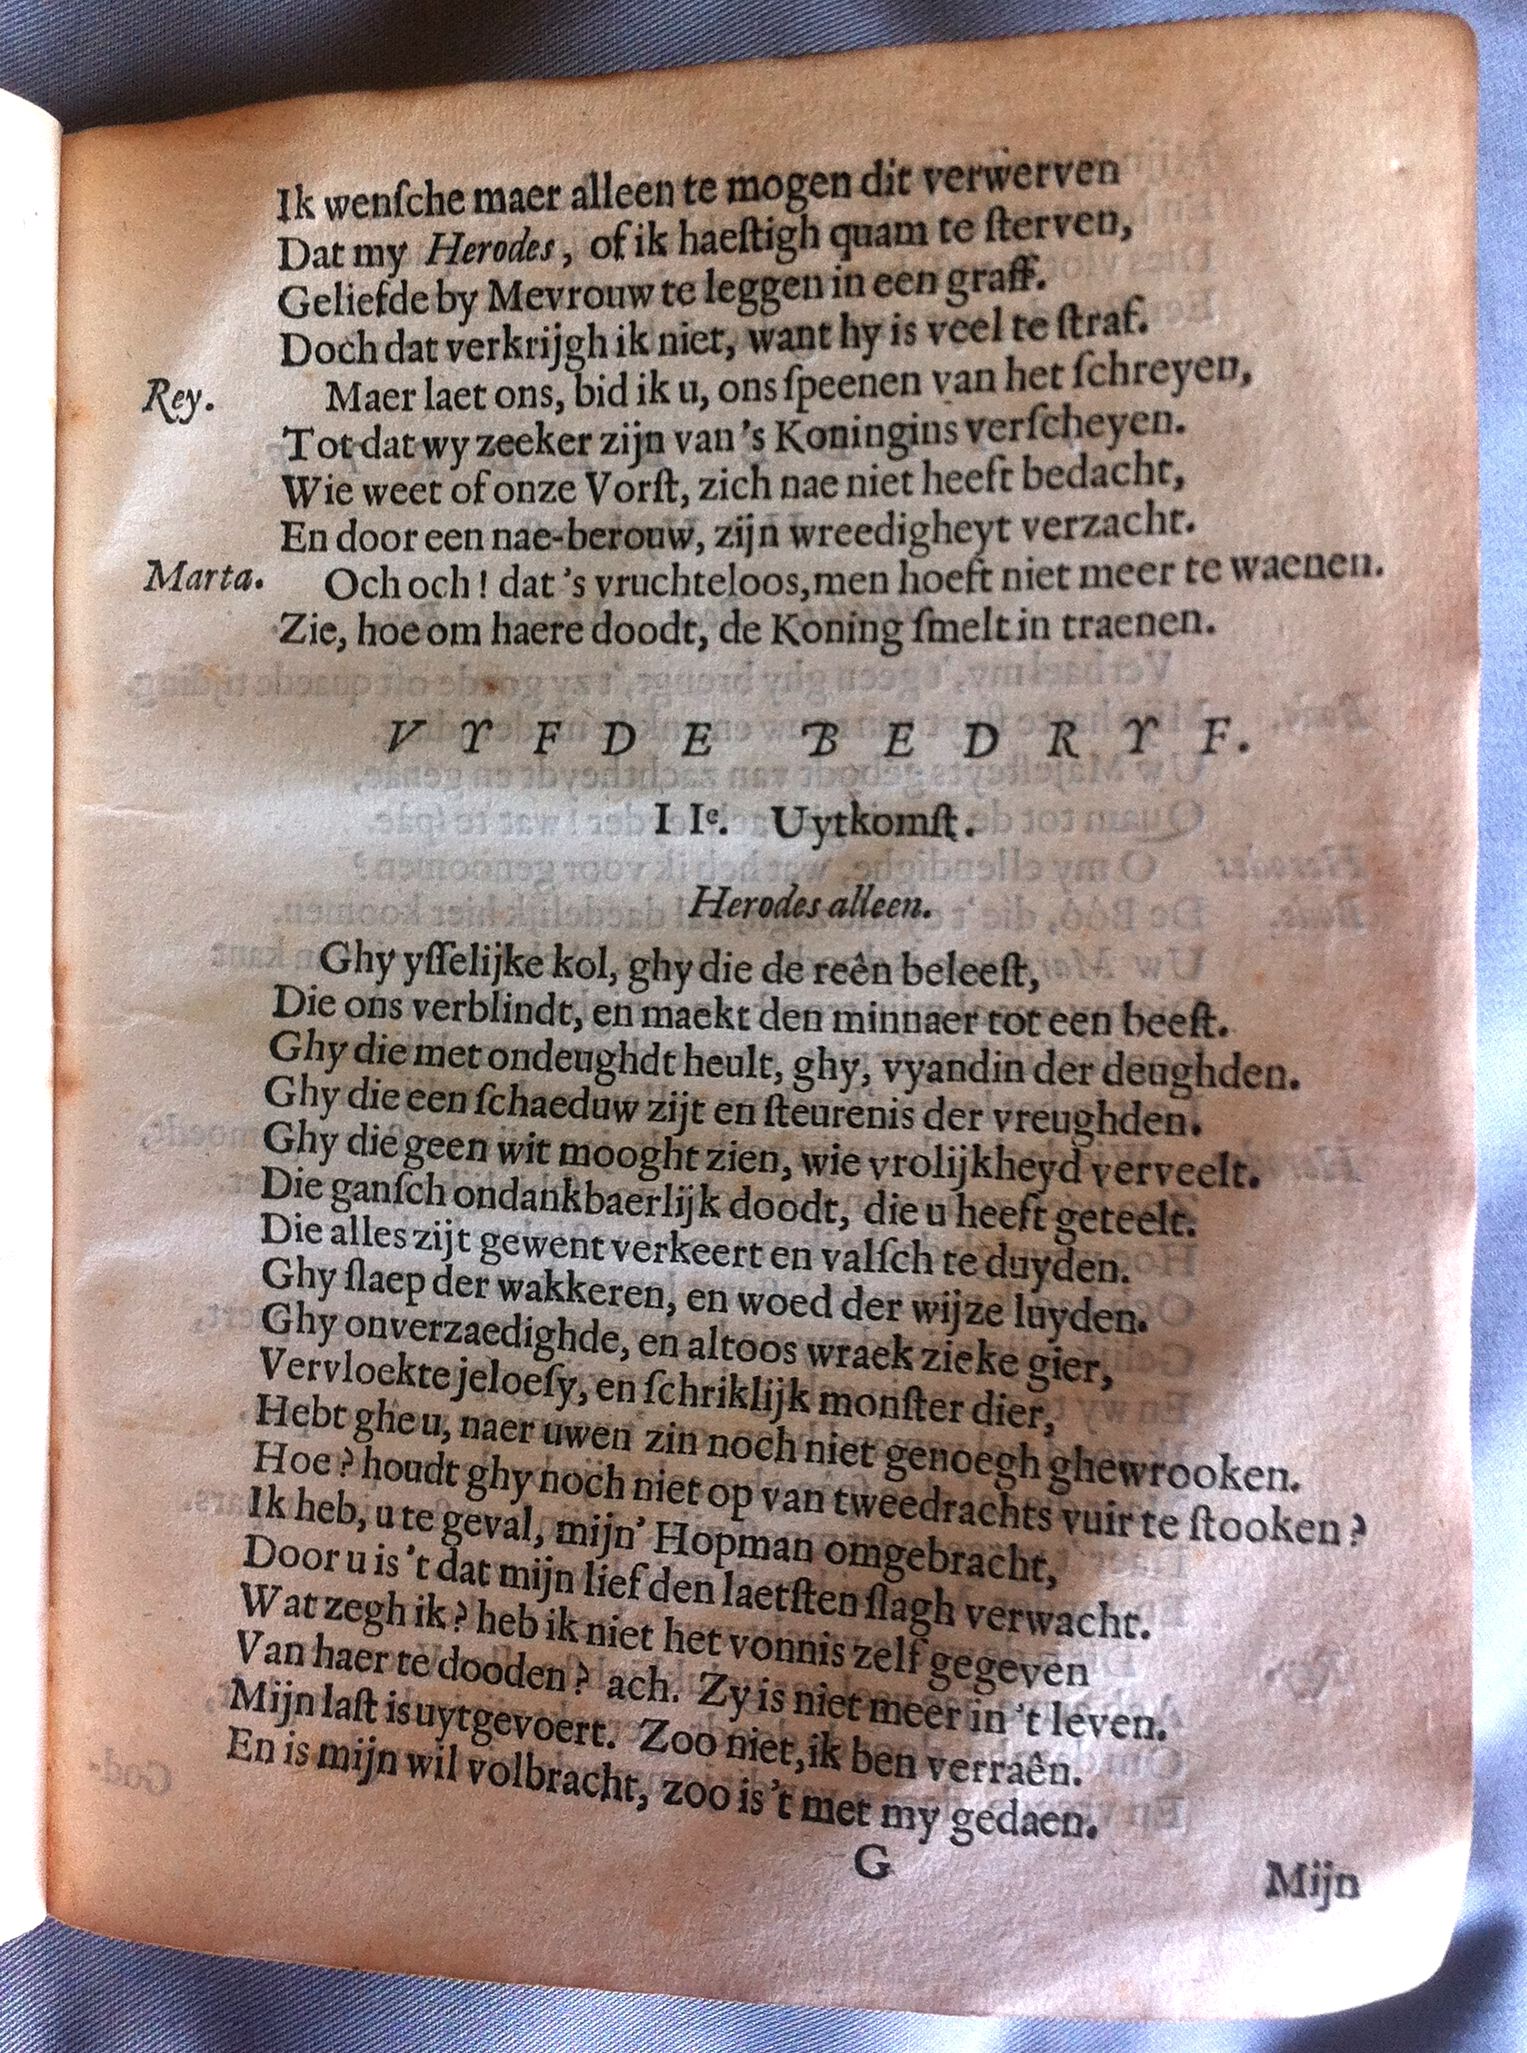 Ik wenſche maer alleen te mogen dit verwerven
Dat my Herodes, of ik haeſtigh quam te ſterven,
Geliefde by Mevrouw te leggen in een graff.
Doch dat verkrijgh ik niet, want hy is veel te ſtraf.
Rey. Maer laet ons, bid ik u, ons ſpeenen van het ſchreyen,
Tot dat wy zeeker zijn van 's Koningins verſcheyen.
Wie weet of onze Vorſt, zich nae niet heeft bedacht,
En door een nae-berouw, zijn wreedigheyt verzacht.
Marta. Och och! dat 's vruchteloos, men hoeft niet meer te waenen.
Zie, hoe om haere doodt, de Koning ſmelt in traenen.
VYFDE BEDRYF.
IIe. Uytkomſt.
Herodes alleen.
Ghy yſſelijke kol, ghy die de reên beleeſt,
Die ons verblindt, en maekt den minnaer tot een beeſt.
Ghy die met ondeughdt heult, ghy, vyandin der deughden.
Ghy die een ſchaeduw zijt en ſteurenis der vreughden.
Ghy die geen wit mooght zien, wie vrolijkheyd verveelt.
Die ganſch ondankbaerlijk doodt, die u heeft geteelt.
Die alles zijt gewent verkeert en valſch te duyden.
Ghy ſlaep der wakkeren, en woed der wijze luyden.
Ghy onverzaedighde, en altoos wraek zieke gier,
Vervloekte jeloeſy, en ſchriklijk monſter dier,
Hebt ghe u, naer uwen zin noch niet genoegh ghewrooken.
Hoe? houdt ghy noch niet op van tweedrachts vuir te ſtooken?
Ik heb, u te geval, mijn' Hopman omgebracht,
Door u is 't dat mijn lief den laetſten ſlagh verwacht.
Wat zegh ik? heb ik niet het vonnis zelf gegeven
Van haer te dooden? ach. Zy is niet meer in 't leven.
Mijn laſt is uytgevoert. Zoo niet, ik ben verraên.
En is mijn wil volbracht, zoo is 't met my gedaen.
G
Mijn